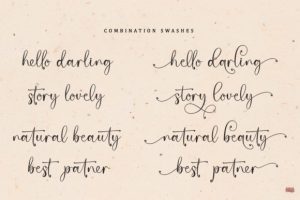 COMBINATION SWASHES
hello darling
hello darling
story lovely
story lovely
natural beauty
natural beauty
best patner
best patner